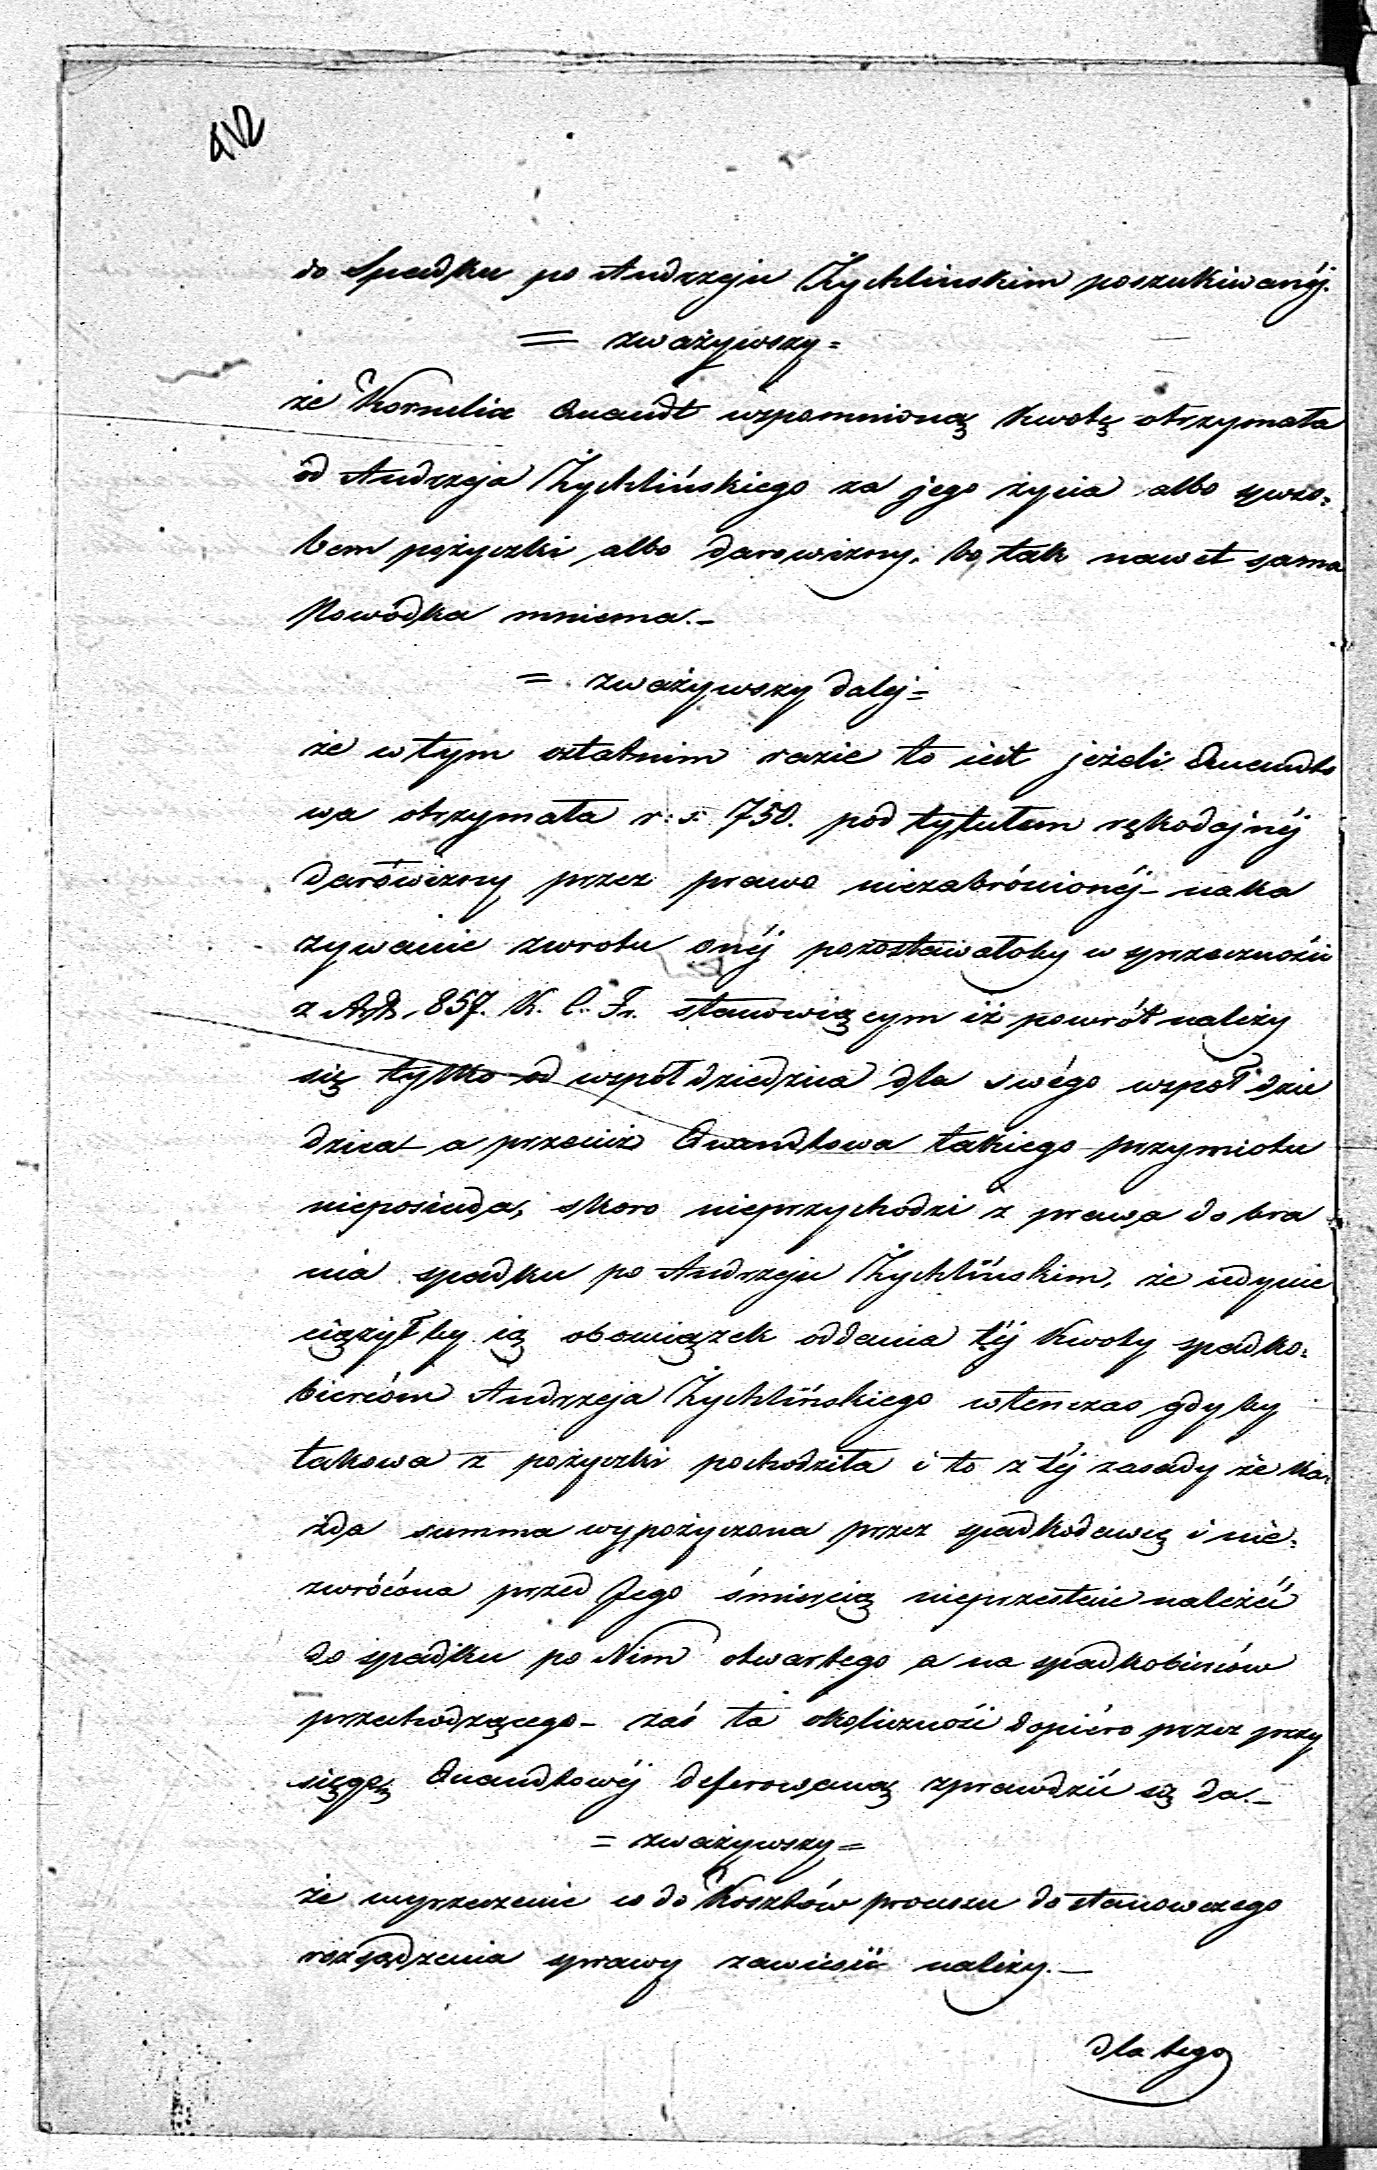 412
do Spadku po Andrzeju Żychlinskim poszukiwanéj.
= zważywszy =
że Kornelia Quandt wspomnioną kwotę otrzymała
od Andrzeja Żychlińskiego za jego życia albo sposo=
bem pożyczki albo darowizny, bo tak nawet sama
Powódka mniema. –
= zważywszy daléj =
że w tym ostatnim razie to iest jeżeli Quandto
wa otrzymała r: s: 750. pod tytułem rękodajnéj
darówizny przez prawo niezabrónionéj – naka
zywanie zwrotu onéj pozostawałoby w sprzeczności
z Art. 857. K. C. Fr. stanowiącym iż powrót należy
się tylko od wspołdziedzica dla swégo wspołdzie
dzica – a przecież Quandtowa takiego przymiotu
nieposiada, skoro nieprzychodzi z prawa do bra
nia spadku po Andrzeju Żychlińskim, że iedynie
ciążył by ią obowiązek oddania téj kwoty spadko=
biercóm Andrzeja Żychlińskiego wtenczas gdyby
takowa z pożyczki pochodziła i to z téj zasady że ka=
żda summa wypożyczona przez spadkodawcę i nie=
zwrócóna przed Jego śmiercią nieprzestaie należéć
do spadku po Nim otwartego a na spadkobierców
przechodzącego – zaś ta okoliczność dopiéro przez przy
sięgę Quandtowéj deferowaną sprawdzić się da. –
= zważywszy =
że wyrzeczenie co do Kosztów processu do stanowczego
rozsądzenia sprawy zawiesić należy. –
dla tego